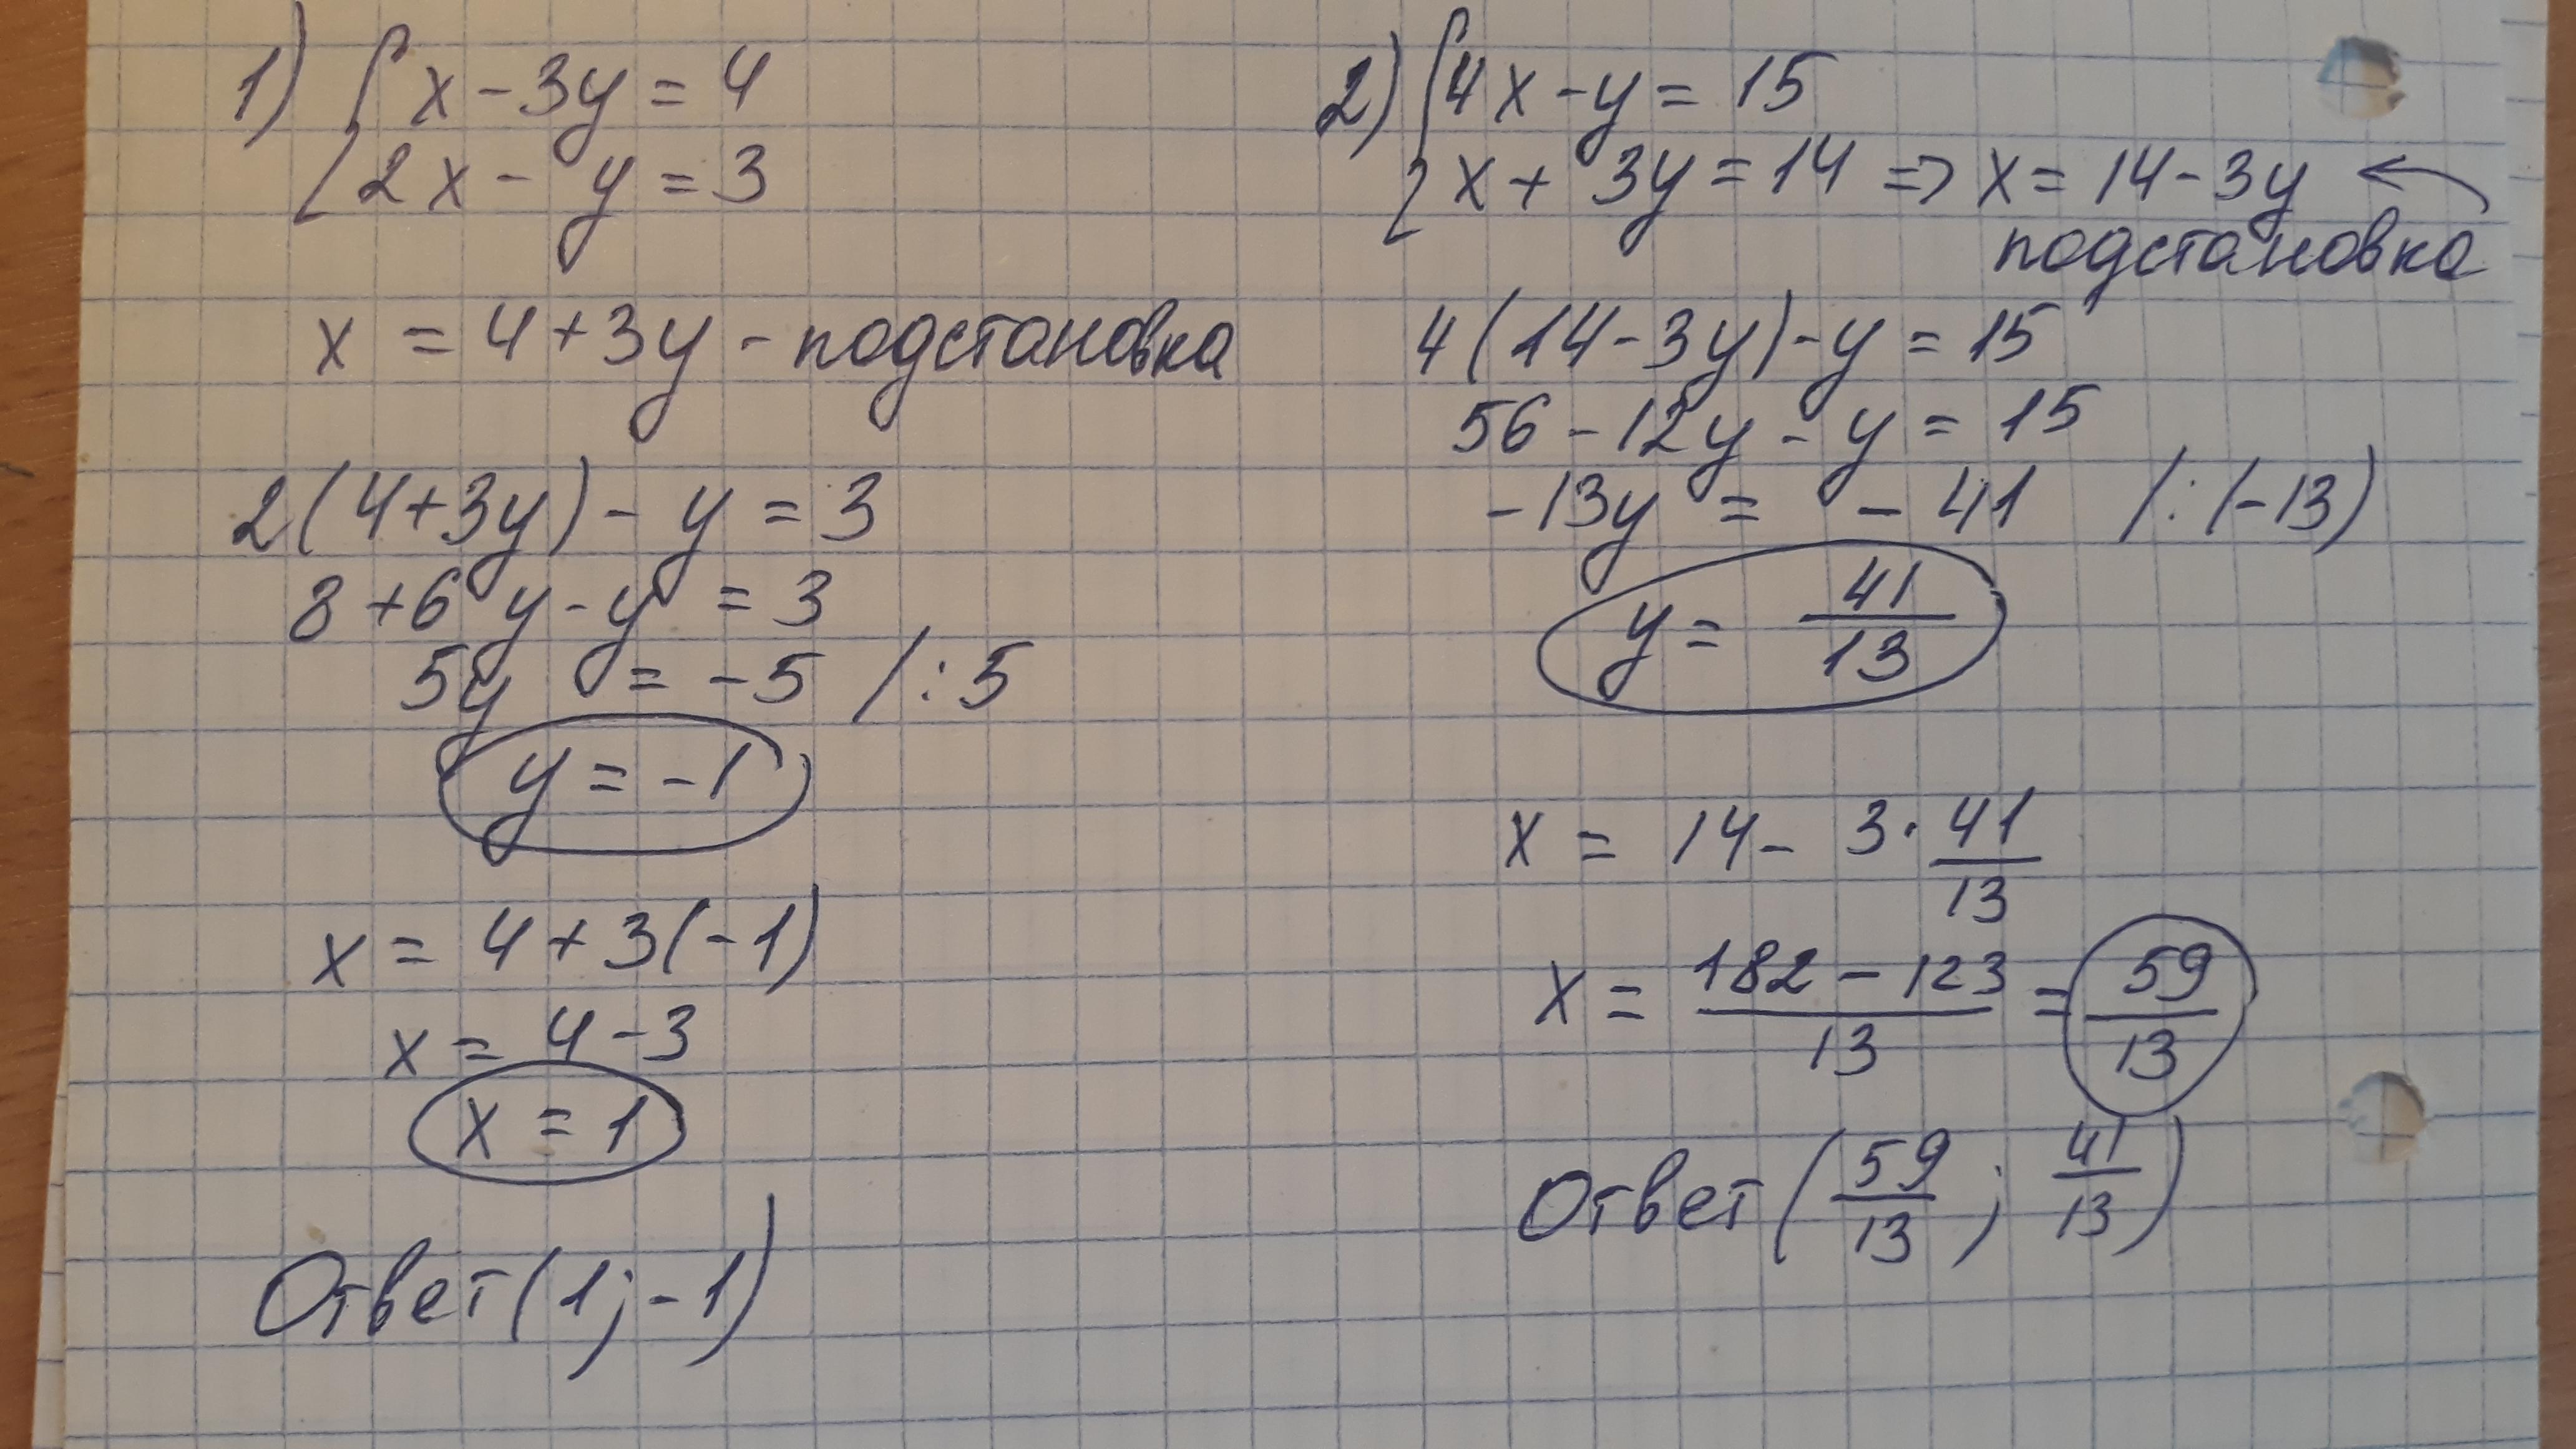 1) { x - 3y = 4
2x - y = 3
x = 4 + 3y - подстановка
2(4+3y) - y = 3
8 + 6y - y = 3
5y = -5 /:5
y = -1
x = 4 + 3(-1)
x = 4 - 3
x = 1
Ответ (1; -1)
2) { 4x - y = 15
x + 3y = 14 => x = 14 - 3y ←
подстановка
4(14 - 3y) - y = 15
56 - 12y - y = 15
-13y = -41 /:(-13)
y = 41/13
x = 14 - 3 · 41/13
x = (182 - 123)/13 = 59/13
Ответ (59/13; 41/13)